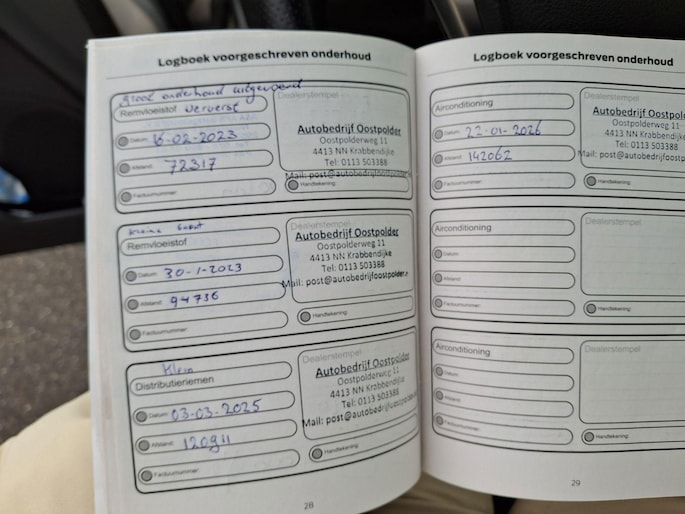 Logboek voorgeschreven onderhoud
groot onderhoud uitgevoerd
Remvloeistof ververst
Datum: 16-02-2023
Afstand: 72317
Factuurnummer:
Dealerstempel
Autobedrijf Oostpolder
Oostpolderweg 11
4413 NN Krabbendijke
Tel: 0113 503388
Mail: post@autobedrijfoostpolder
Handtekening:
Kleine beurt
Remvloeistof
Datum: 30-1-2023
Afstand: 94736
Factuurnummer:
Autobedrijf Oostpolder
Oostpolderweg 11
4413 NN Krabbendijke
Tel: 0113 503388
Mail: post@autobedrijfoostpolder.n
Handtekening:
Klein
Distributieriemen
Datum: 03-03-2025
Afstand: 120911
Factuurnummer:
Dealerstempel
Autobedrijf Oostpolder
Oostpolderweg 11
4413 NN Krabbendijke
Tel: 0113 503388
Mail: post@autobedrijfoostpolder
Handtekening:
28
Logboek voorgeschreven onderhoud
Airconditioning
Datum: 22-01-2026
Afstand: 142062
Factuurnummer:
Dealerstempel
Autobedrijf Oostpo
Oostpolderweg 11
4413 NN Krabbendijk
Tel: 0113 503388
Mail: post@autobedrijfoostp
Handtekening:
Airconditioning
Datum:
Afstand:
Factuurnummer:
Dealerstempel
Handtekening:
Airconditioning
Datum:
Afstand:
Factuurnummer:
Dealerstempel
Handtekening:
29